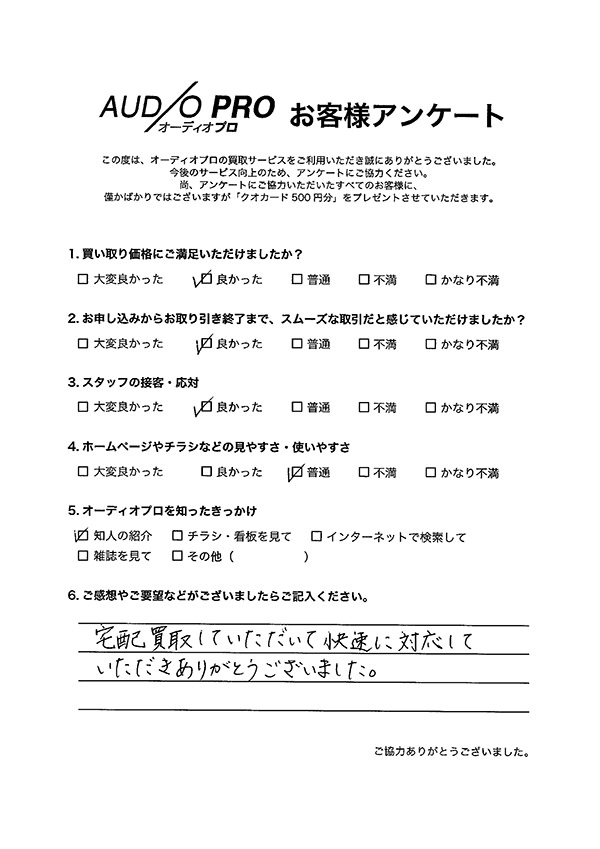 AUDIO PRO お客様アンケート
オーディオプロ
この度は、オーディオプロの買取サービスをご利用いただき誠にありがとうございました。
今後のサービス向上のため、アンケートにご協力ください。
尚、アンケートにご協力いただいたすべてのお客様に、
僅かばかりではございますが「クオカード500円分」をプレゼントさせていただきます。
1. 買い取り価格にご満足いただけましたか？
□ 大変良かった ☑ 良かった □ 普通 □ 不満 □ かなり不満
2. お申し込みからお取り引き終了まで、スムーズな取引だと感じていただけましたか？
□ 大変良かった ☑ 良かった □ 普通 □ 不満 □ かなり不満
3. スタッフの接客・応対
□ 大変良かった ☑ 良かった □ 普通 □ 不満 □ かなり不満
4. ホームページやチラシなどの見やすさ・使いやすさ
□ 大変良かった □ 良かった ☑ 普通 □ 不満 □ かなり不満
5. オーディオプロを知ったきっかけ
☑ 知人の紹介 □ チラシ・看板を見て □ インターネットで検索して
□ 雑誌を見て □ その他（ ）
6. ご感想やご要望などがございましたらご記入ください。
宅配買取していただいて快速に対応して
いただきありがとうございました。
ご協力ありがとうございました。